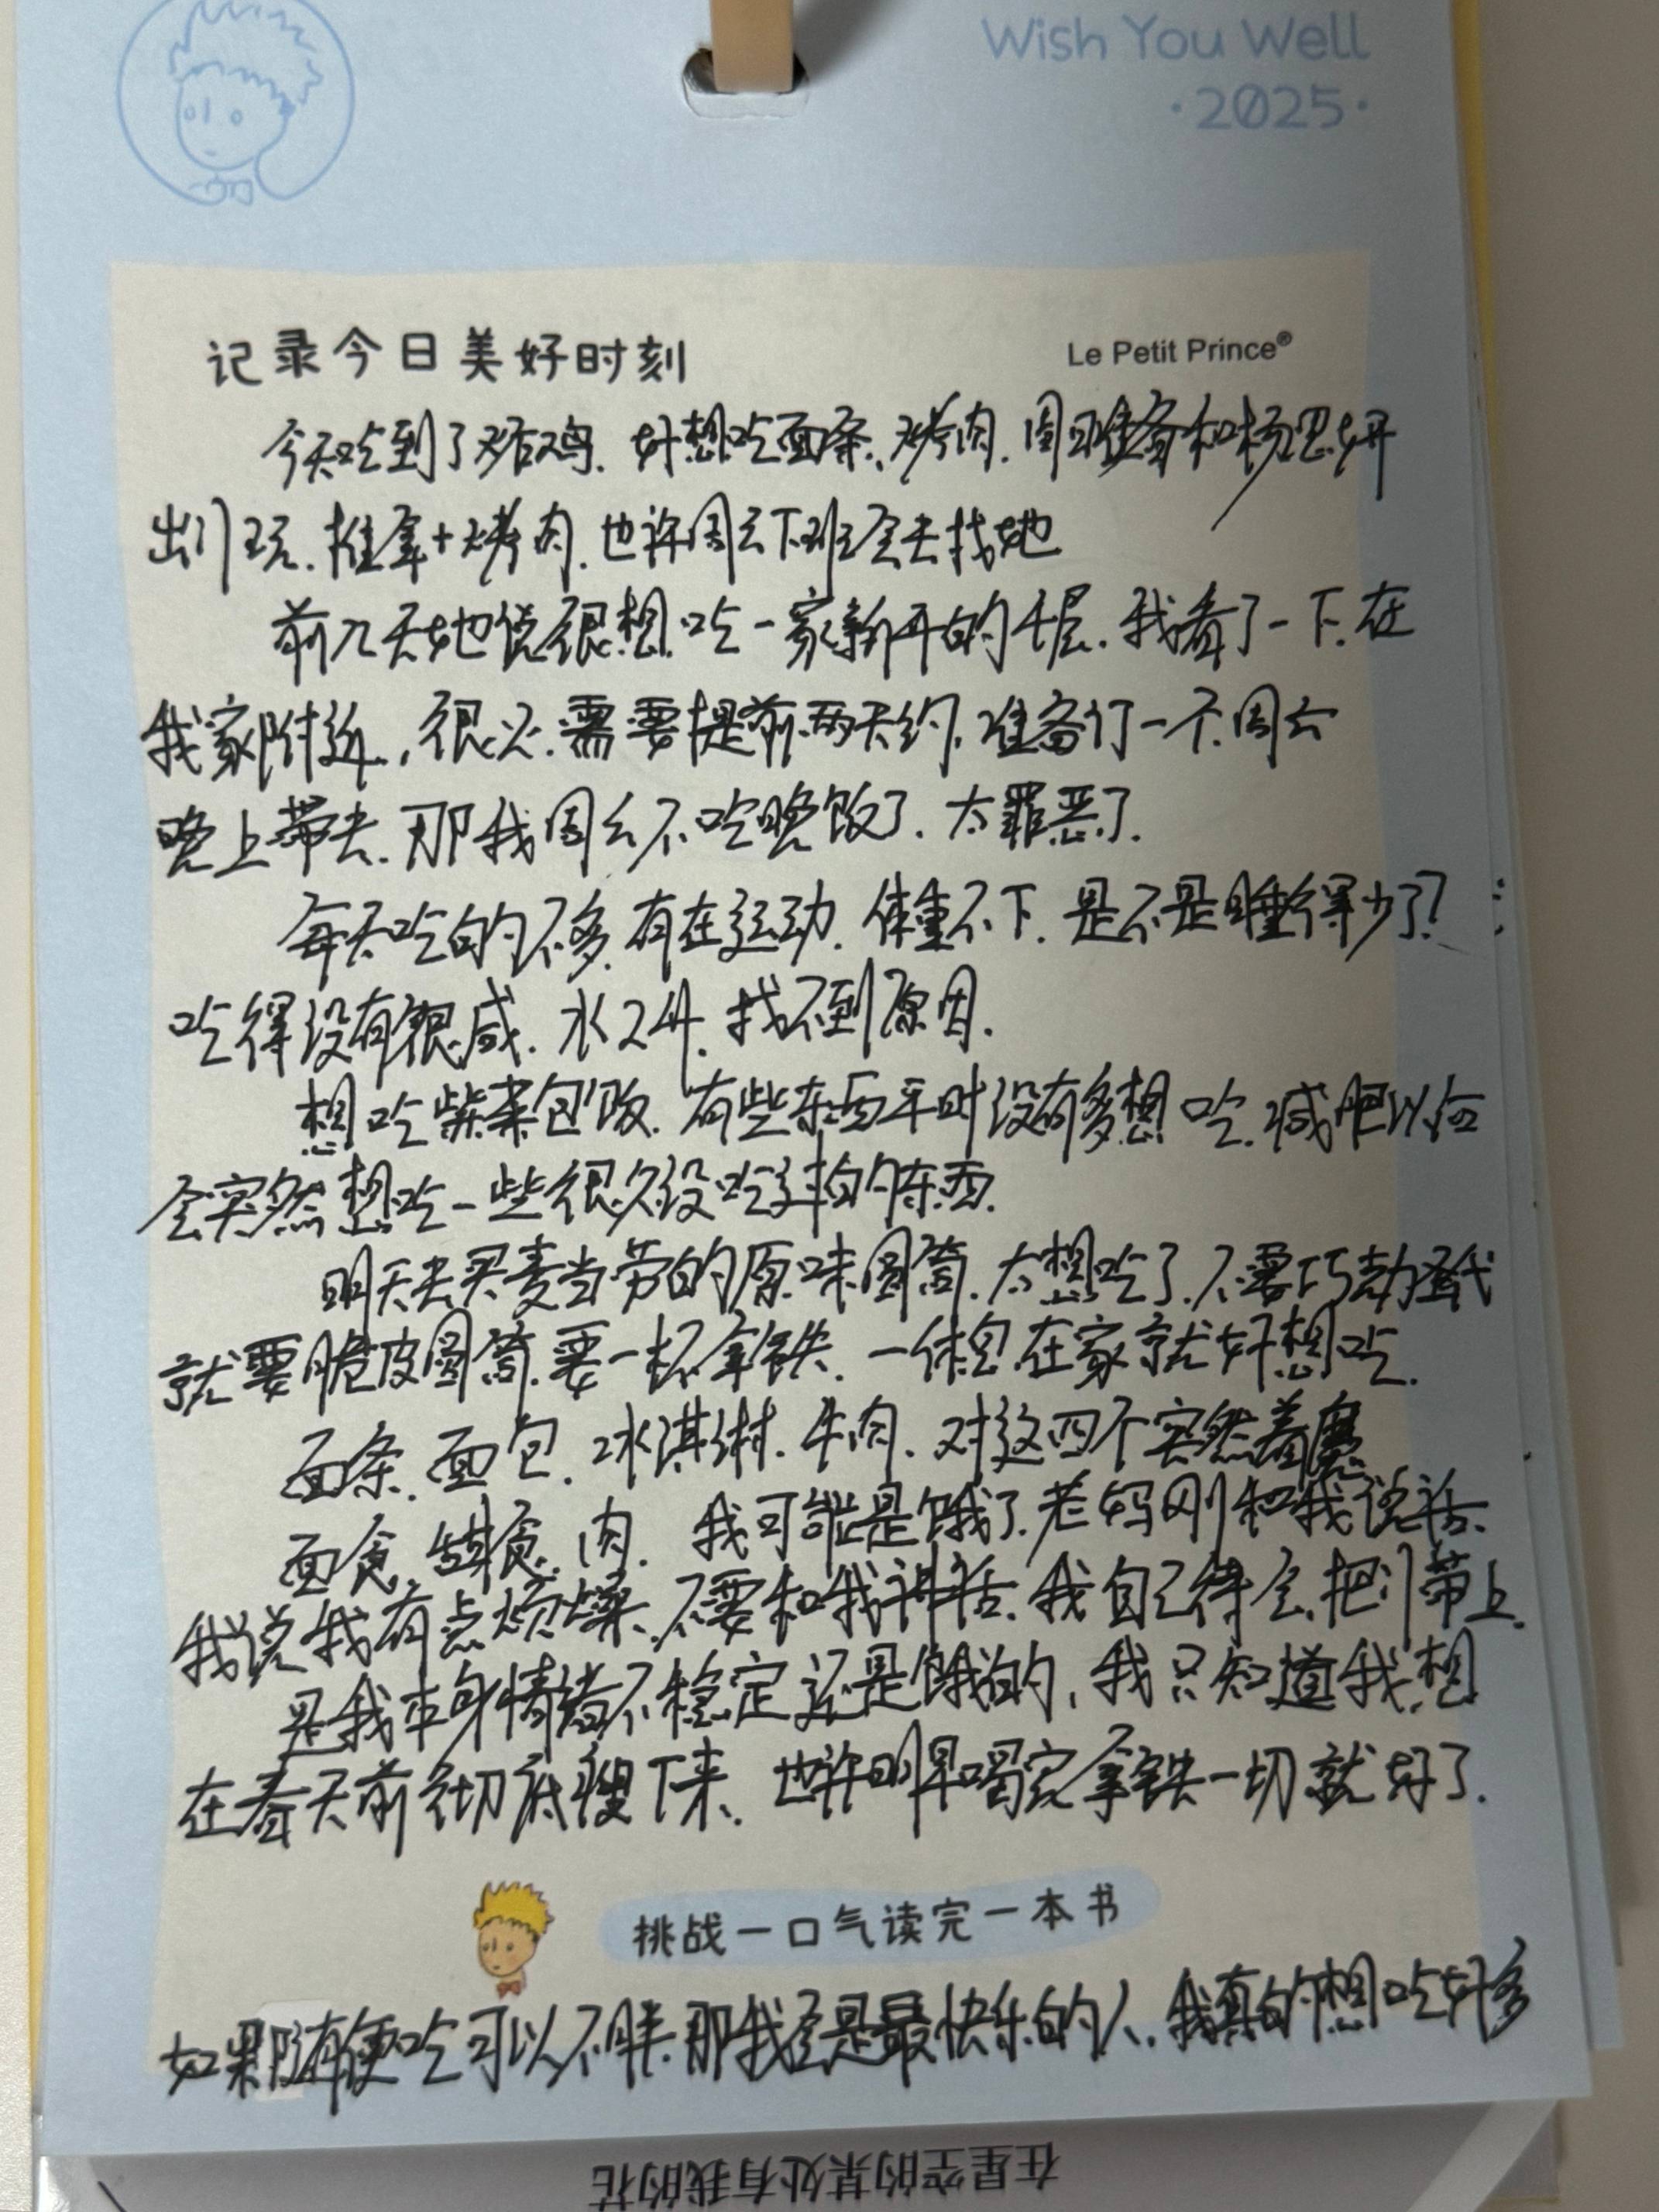 Wish You Well
·2025·
记录今日美好时刻
Le Petit Prince®
今天吃到了烤鸡.好想吃面条、烤肉.周日准备和杨思妍
出门玩.推拿+烤肉.也许周六下班会去找她
前几天她说很想吃一家新开的千层.我看了一下.在
我家附近.很火.需要提前两天约.准备订一个.周六
晚上带去.那我周六不吃晚饭了.太罪恶了.
每天吃的不多.有在运动.体重不下.是不是睡得少了?
吃得没有很咸.水2升.找不到原因.
想吃紫菜包饭.有些东西平时没有多想吃.减肥以后
会突然想吃一些很久没吃过的东西.
明天去买麦当劳的原味圆筒.太想吃了.不要巧劲蛋代
就要脆皮圆筒.要一杯拿铁.一休息在家就好想吃.
面条.面包.冰淇淋.牛肉.对这四个突然着魔
面食.甜食.肉.我可能是饿了.老妈刚和我说话.
我说我有点烦燥.不要和我讲话.我自己待会.把门带上.
是我本身情绪不稳定还是饿的,我只知道我想
在春天前彻底瘦下来.也许明早喝完拿铁一切就好了.
挑战一口气读完一本书
如果随便吃可以不胖.那我会是最快乐的人.我真的想吃好多
在星空的某处有我的花